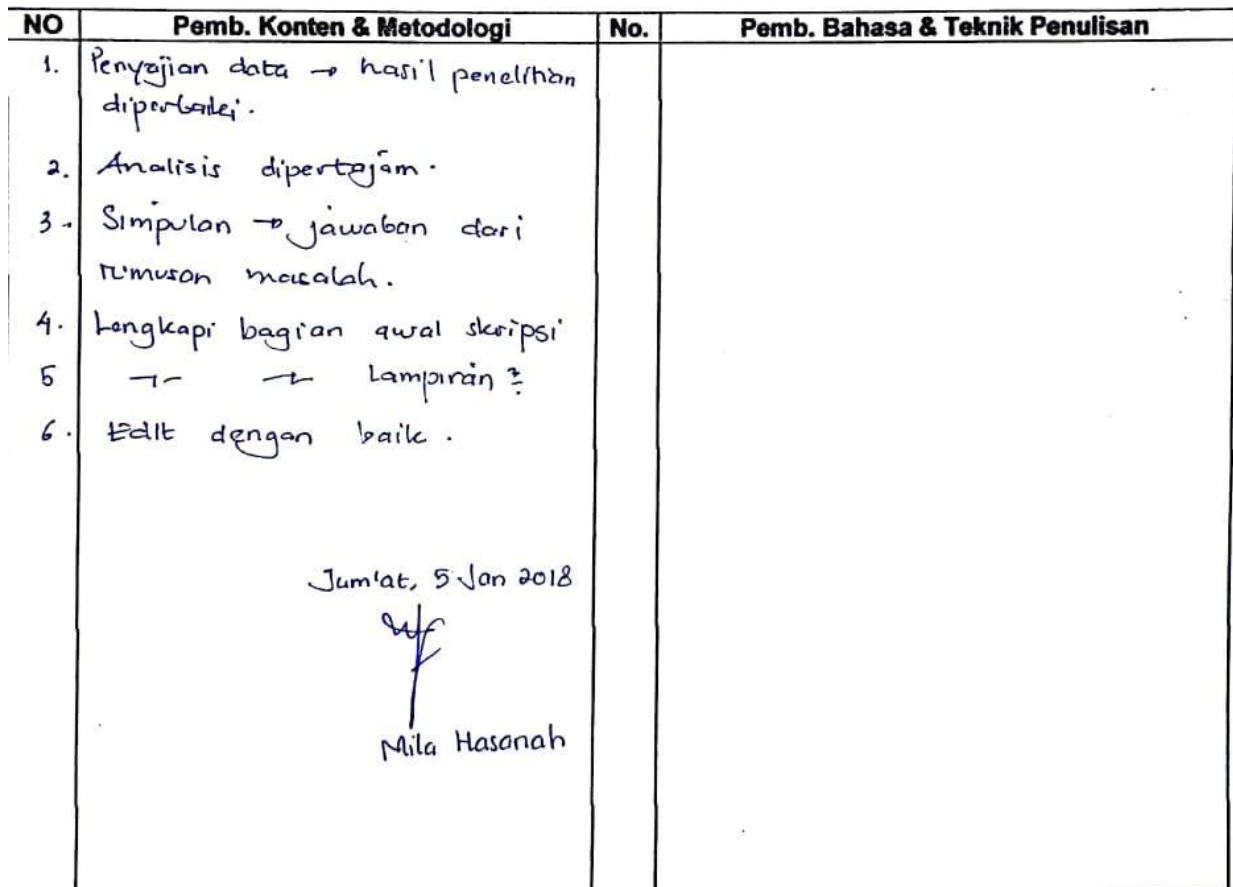 NO Pemb. Konten & Metodologi No. Pemb. Bahasa & Teknik Penulisan
1. Penyajian data → hasil penelitian
diperbaiki.
2. Analisis dipertajam.
3. Simpulan → jawaban dari
rumusan masalah.
4. Lengkapi bagian awal skripsi
5 —〃— —〃— Lampiran ?
6. Edit dengan baik.
Jum'at, 5 Jan 2018
Mila Hasanah